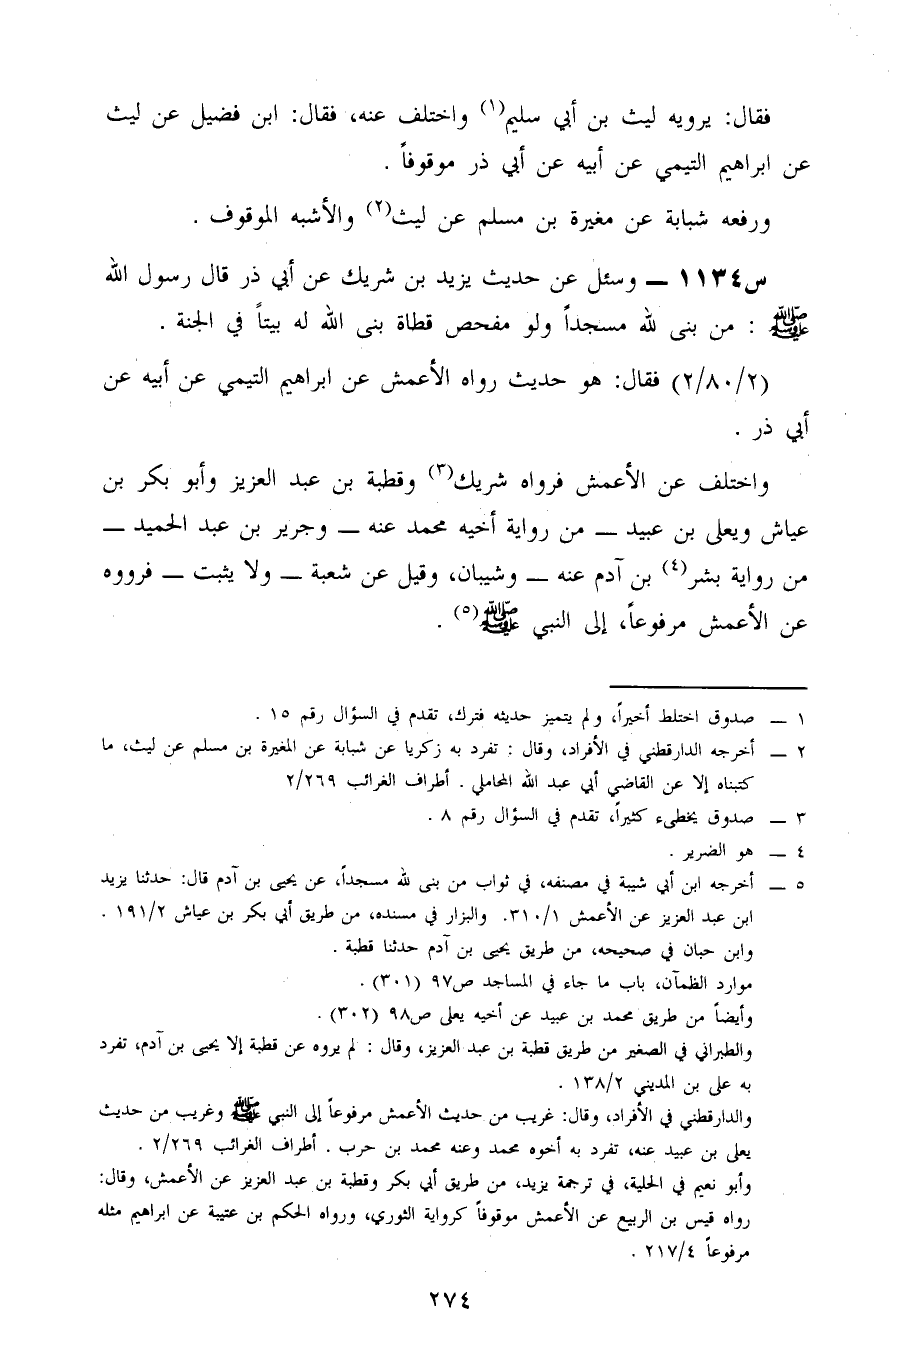 فقال: يرويه ليث بن أبي سليم(١) واختلف عنه، فقال: ابن فضيل عن ليث
عن ابراهيم التيمي عن أبيه عن أبي ذر موقوفاً .
ورفعه شبابة عن مغيرة بن مسلم عن ليث(٢) والأشبه الموقوف .
س١١٣٤ ــ وسئل عن حديث يزيد بن شريك عن أبي ذر قال رسول الله
ﷺ : من بنى لله مسجداً ولو مفحص قطاة بنى الله له بيتاً في الجنة .
(٢/٨٠/٢) فقال: هو حديث رواه الأعمش عن ابراهيم التيمي عن أبيه عن
أبي ذر .
واختلف عن الأعمش فرواه شريك(٣) وقطبة بن عبد العزيز وأبو بكر بن
عياش ويعلى بن عبيد ــ من رواية أخيه محمد عنه ــ وجرير بن عبد الحميد ــ
من رواية بشر(٤) بن آدم عنه ــ وشيبان، وقيل عن شعبة ــ ولا يثبت ــ فرووه
عن الأعمش مرفوعاً، إلى النبي ﷺ(٥) .
١ ــ صدوق اختلط أخيراً، ولم يتميز حديثه فترك، تقدم في السؤال رقم ١٥ .
٢ ــ أخرجه الدارقطني في الأفراد، وقال : تفرد به زكريا عن شبابة عن المغيرة بن مسلم عن ليث، ما
كتبناه إلا عن القاضي أبي عبد الله المحاملي . أطراف الغرائب ٢/٢٦٩
٣ ــ صدوق يخطىء كثيراً، تقدم في السؤال رقم ٨ .
٤ ــ هو الضرير .
٥ ــ أخرجه ابن أبي شيبة في مصنفه، في ثواب من بنى لله مسجداً، عن يحيى بن آدم قال: حدثنا يزيد
ابن عبد العزيز عن الأعمش ٣١٠/١. والبزار في مسنده، من طريق أبي بكر بن عياش ١٩١/٢ .
وابن حبان في صحيحه، من طريق يحيى بن آدم حدثنا قطبة .
موارد الظمآن، باب ما جاء في المساجد ص٩٧ (٣٠١) .
وأيضاً من طريق محمد بن عبيد عن أخيه يعلى ص٩٨ (٣٠٢) .
والطبراني في الصغير من طريق قطبة بن عبد العزيز، وقال : لم يروه عن قطبة إلا يحيى بن آدم، تفرد
به على بن المديني ١٣٨/٢ .
والدارقطني في الأفراد، وقال: غريب من حديث الأعمش مرفوعاً إلى النبي ﷺ وغريب من حديث
يعلى بن عبيد عنه، تفرد به أخوه محمد وعنه محمد بن حرب . أطراف الغرائب ٢/٢٦٩ .
وأبو نعيم في الحلية، في ترجمة يزيد، من طريق أبي بكر وقطبة بن عبد العزيز عن الأعمش، وقال:
رواه قيس بن الربيع عن الأعمش موقوفاً كرواية الثوري، ورواه الحكم بن عتيبة عن ابراهيم مثله
مرفوعاً ٢١٧/٤ .
٢٧٤